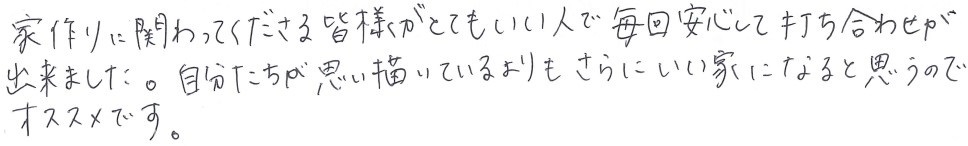 家作りに関わってくださる皆様がとてもいい人で毎回安心して打ち合わせが
出来ました。自分たちが思い描いているよりもさらにいい家になると思うので
オススメです。